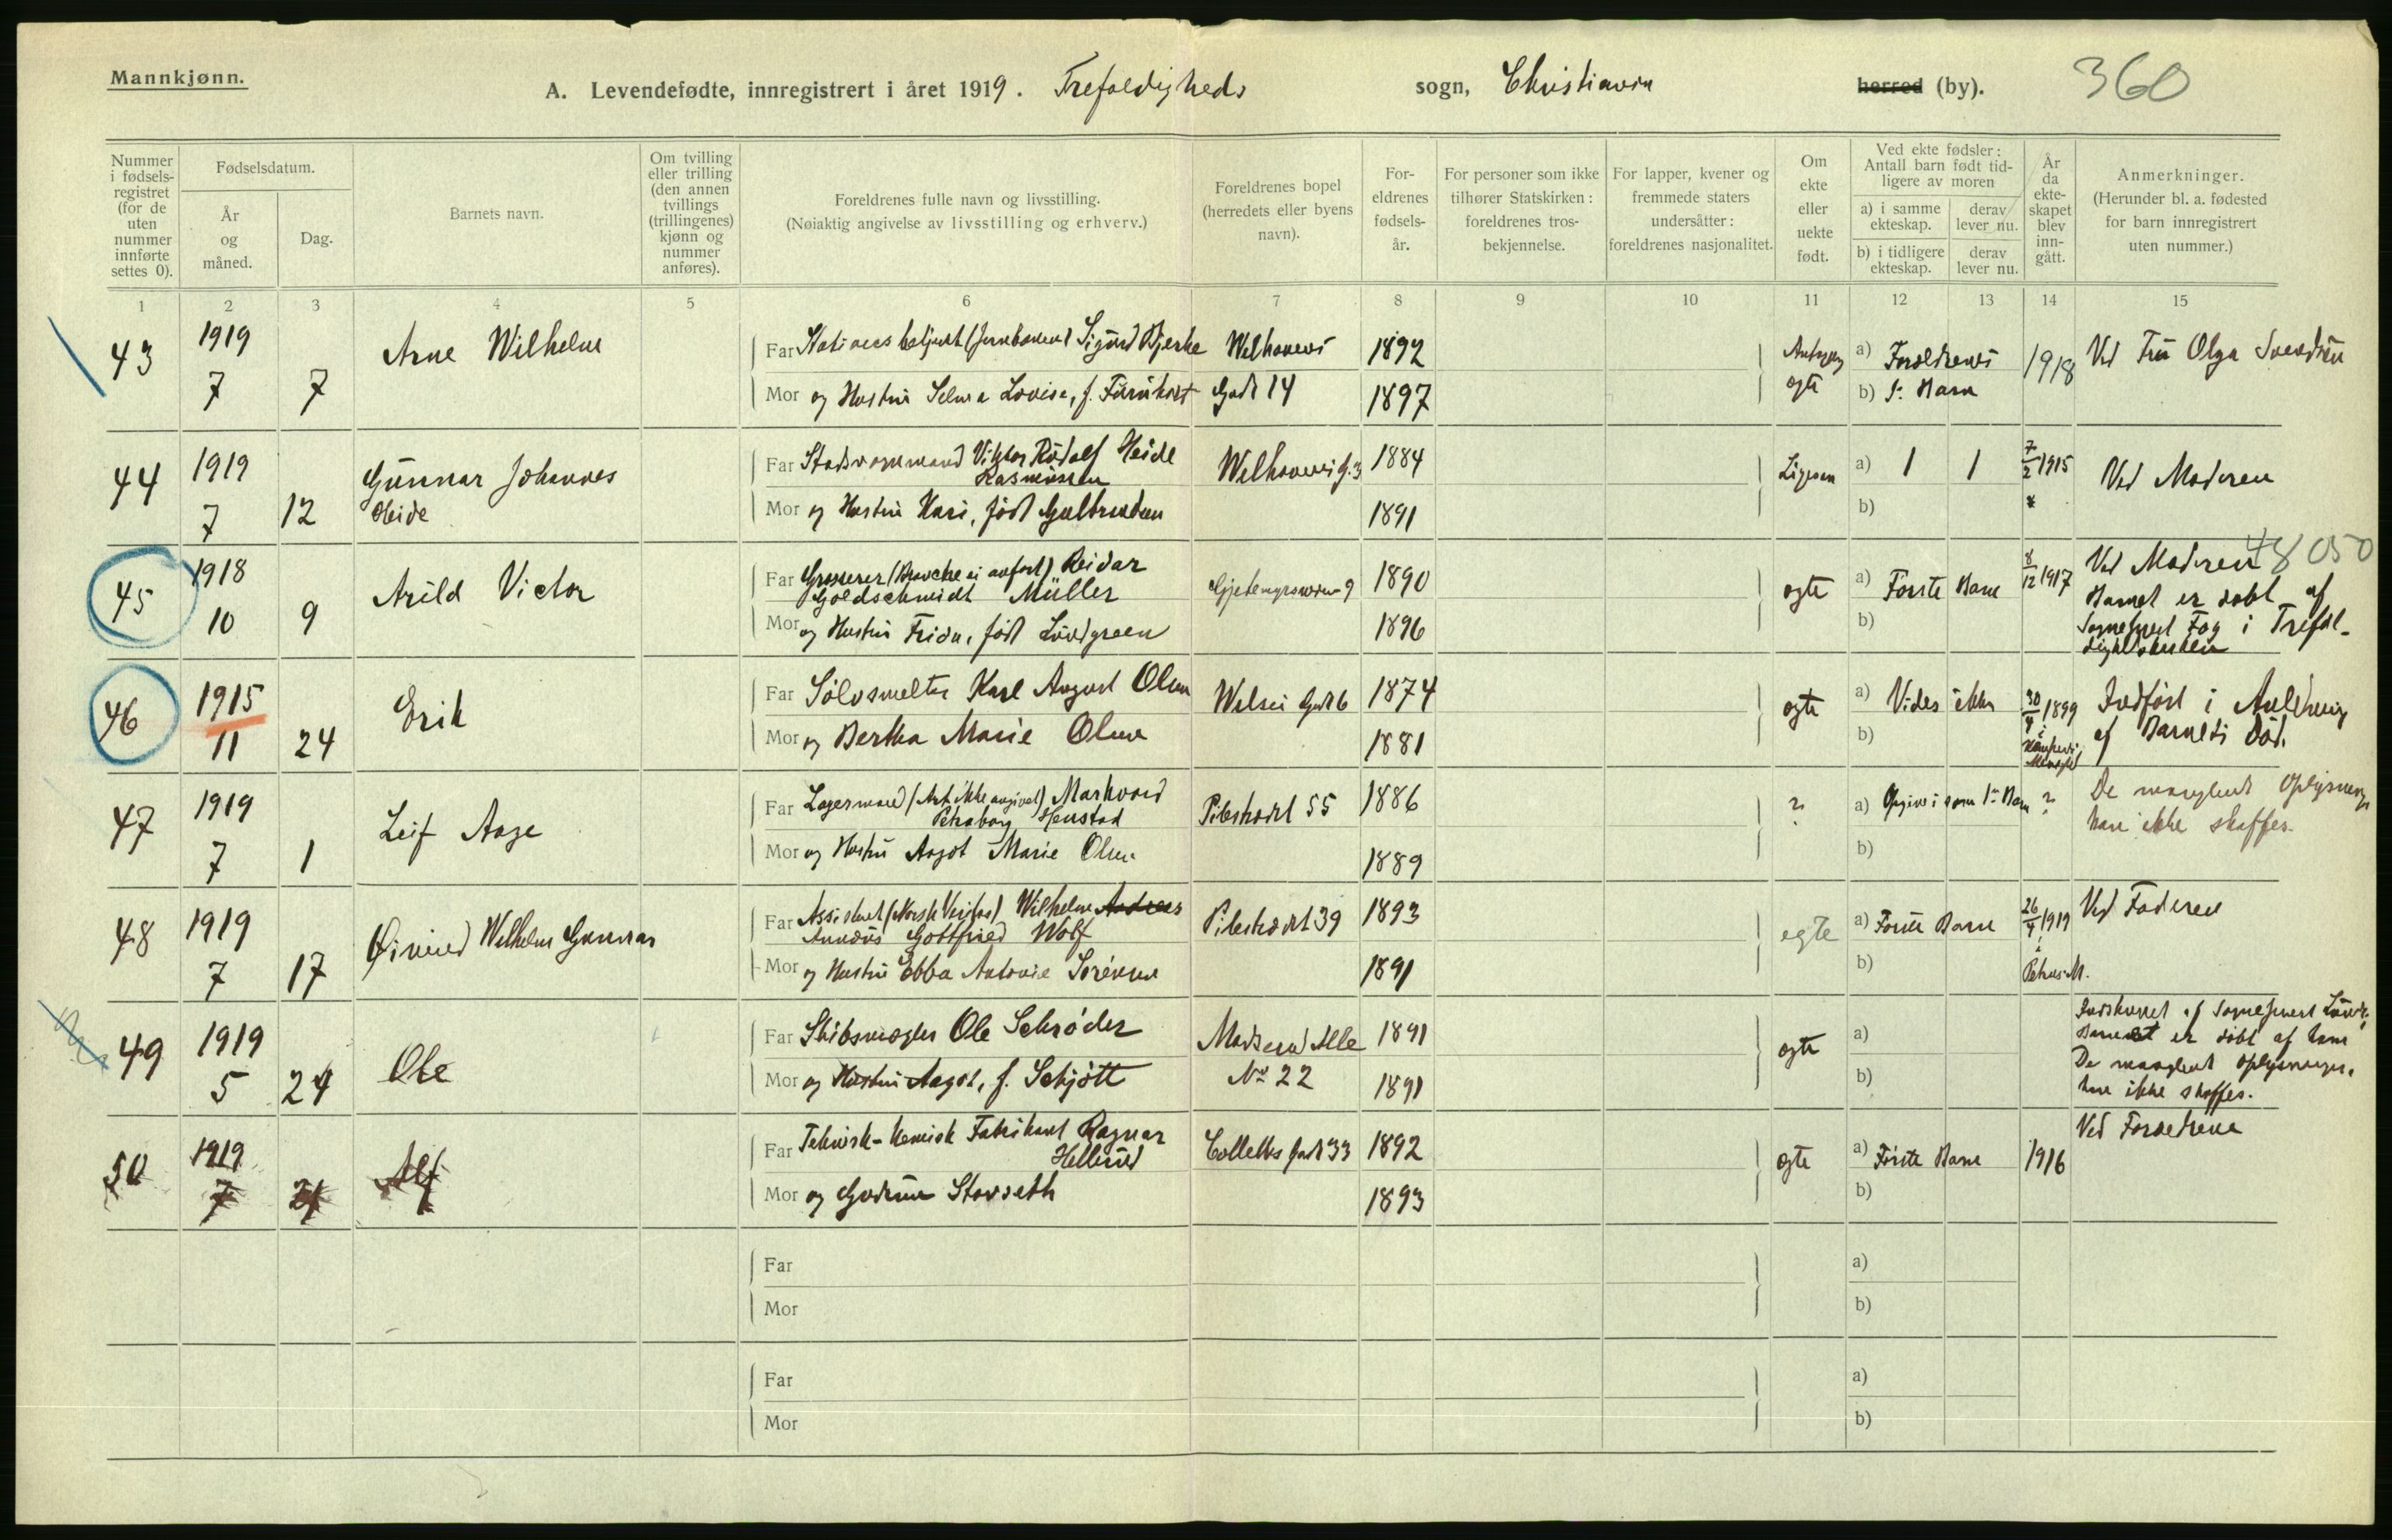 Mannkjønn.
A. Levendefødte, innregistrert i året 1919. Trefoldigheds sogn, Christiania herred (by). 360
Nummer i fødsels-registret (for de uten nummer innførte settes 0).
Fødselsdatum.
År og måned.
Dag.
Barnets navn.
Om tvilling eller trilling (den annen tvillings (trillingenes) kjønn og nummer anføres).
Foreldrenes fulle navn og livsstilling.
(Nøiaktig angivelse av livsstilling og erhverv.)
Foreldrenes bopel (herredets eller byens navn).
For-eldrenes fødsels-år.
For personer som ikke tilhører Statskirken: foreldrenes tros-bekjennelse.
For lapper, kvener og fremmede staters undersåtter: foreldrenes nasjonalitet.
Om ekte eller uekte født.
Ved ekte fødsler: Antall barn født tid-ligere av moren
a) i samme ekteskap.
derav lever nu.
b) i tidligere ekteskap.
derav lever nu.
År da ekte-skapet blev inn-gått.
Anmerkninger.
(Herunder bl. a. fødested for barn innregistrert uten nummer.)
1 2 3 4 5 6 7 8 9 10 11 12 13 14 15
43 1919 7 7 Arne Wilhelm
Far Sigurd Bjerke Welhavens 1892
Mor og Hustru Selma Lovise, f. Gade 14 1897
egte a) Forældrenes b) 1. Barn 1918 Ved Fru Olga Svendsen
44 1919 7 12 Gunnar Johannes Heide
Far Viktor Rudolf Heide Rasmussen Welhavens g. 3 1884
Mor og Hustru Kari, født 1891
Ligesaa a) 1 1 b) 7/2 1915 Ved Moderen
45 1918 10 9 Arild Victor
Far Grosserer (Branche ei anført) Reidar Goldschmidt Müller 9 1890
Mor og Hustru Frida, født Lövdgreen 1896
egte a) Første Barn b) 8/12 1917 Ved Moderen 48 050
Barnet er døbt af Sogneprest Fog i Trefol-dighedskirken
46 1915 11 24 Erik
Far Sølvsmelter Karl August Olsen Gade 6 1874
Mor og Bertha Marie Olsen 1881
egte a) Vides ikke b) 30/4 1899 Indført i Anledning af Barnets Død.
47 1919 7 1 Leif Aage
Far Lagermand (Art ikke angivet) Markvard Henstad Pilestrædet 55 1886
Mor og Hustru Aagot Marie Olsen 1889
? a) Opgives som 1ste Barn ? b) De manglende Oplysninger kan ikke skaffes.
48 1919 7 17 Øivind Wilhelm Gunnar
Far Assistent (Norsk Veritas) Wilhelm Andreas Gottfried Wolf Pilestrædet 39 1893
Mor og Hustru Ebba Antonie Sørensen 1891
egte a) Første Barn b) 26/4 1919 i Petrus M. Ved Faderen
49 1919 5 24 Ole
Far Skibsmægler Ole Schrøder Madserud Alle 1891
Mor og Hustru Aagot, f. Schjøtt No 22 1891
egte a) b) Indskrevet af Sogneprest
Barnet er døbt af ham
De manglende Oplysninger
kan ikke skaffes.
50 1919 7 Alf
Far Teknisk-kemisk Fabrikant Ragnar Hellerud Colletts gade 33 1892
Mor og Gudrun Storseth 1893
egte a) Første Barn b) 1916 Ved Forældrene
Far
Mor
a)
b)
Far
Mor
a)
b)